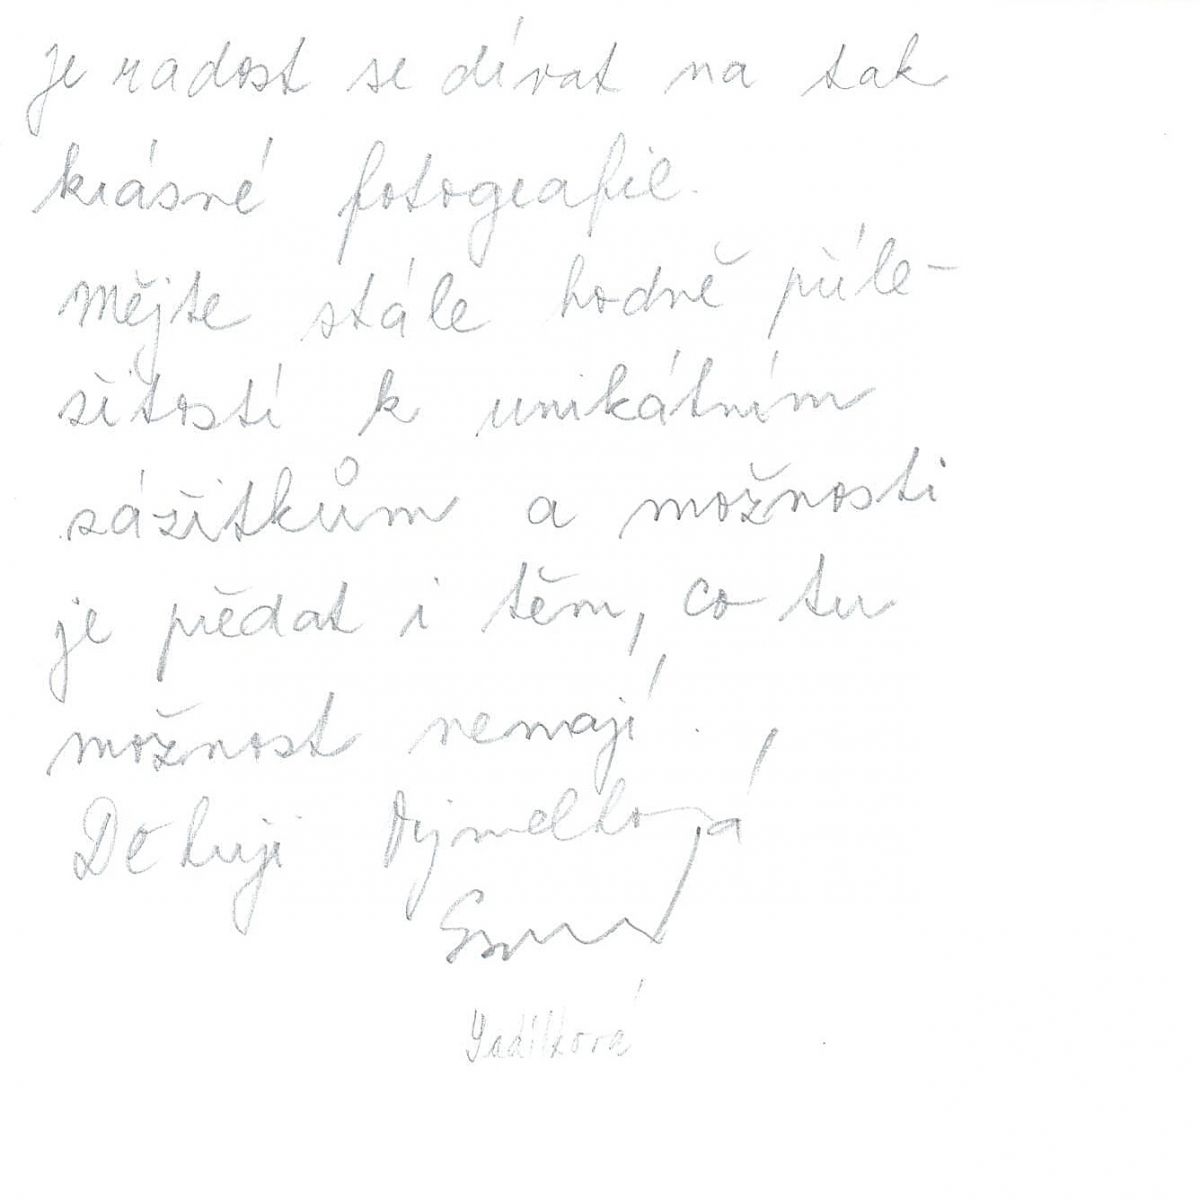 je radost se dívat na tak
krásné fotografie.
Mějte stále hodně příle-
žitostí k unikátním
zážitkům a možnosti
je předat i těm, co tu
možnost nemají.
Děkuji Dýmelková